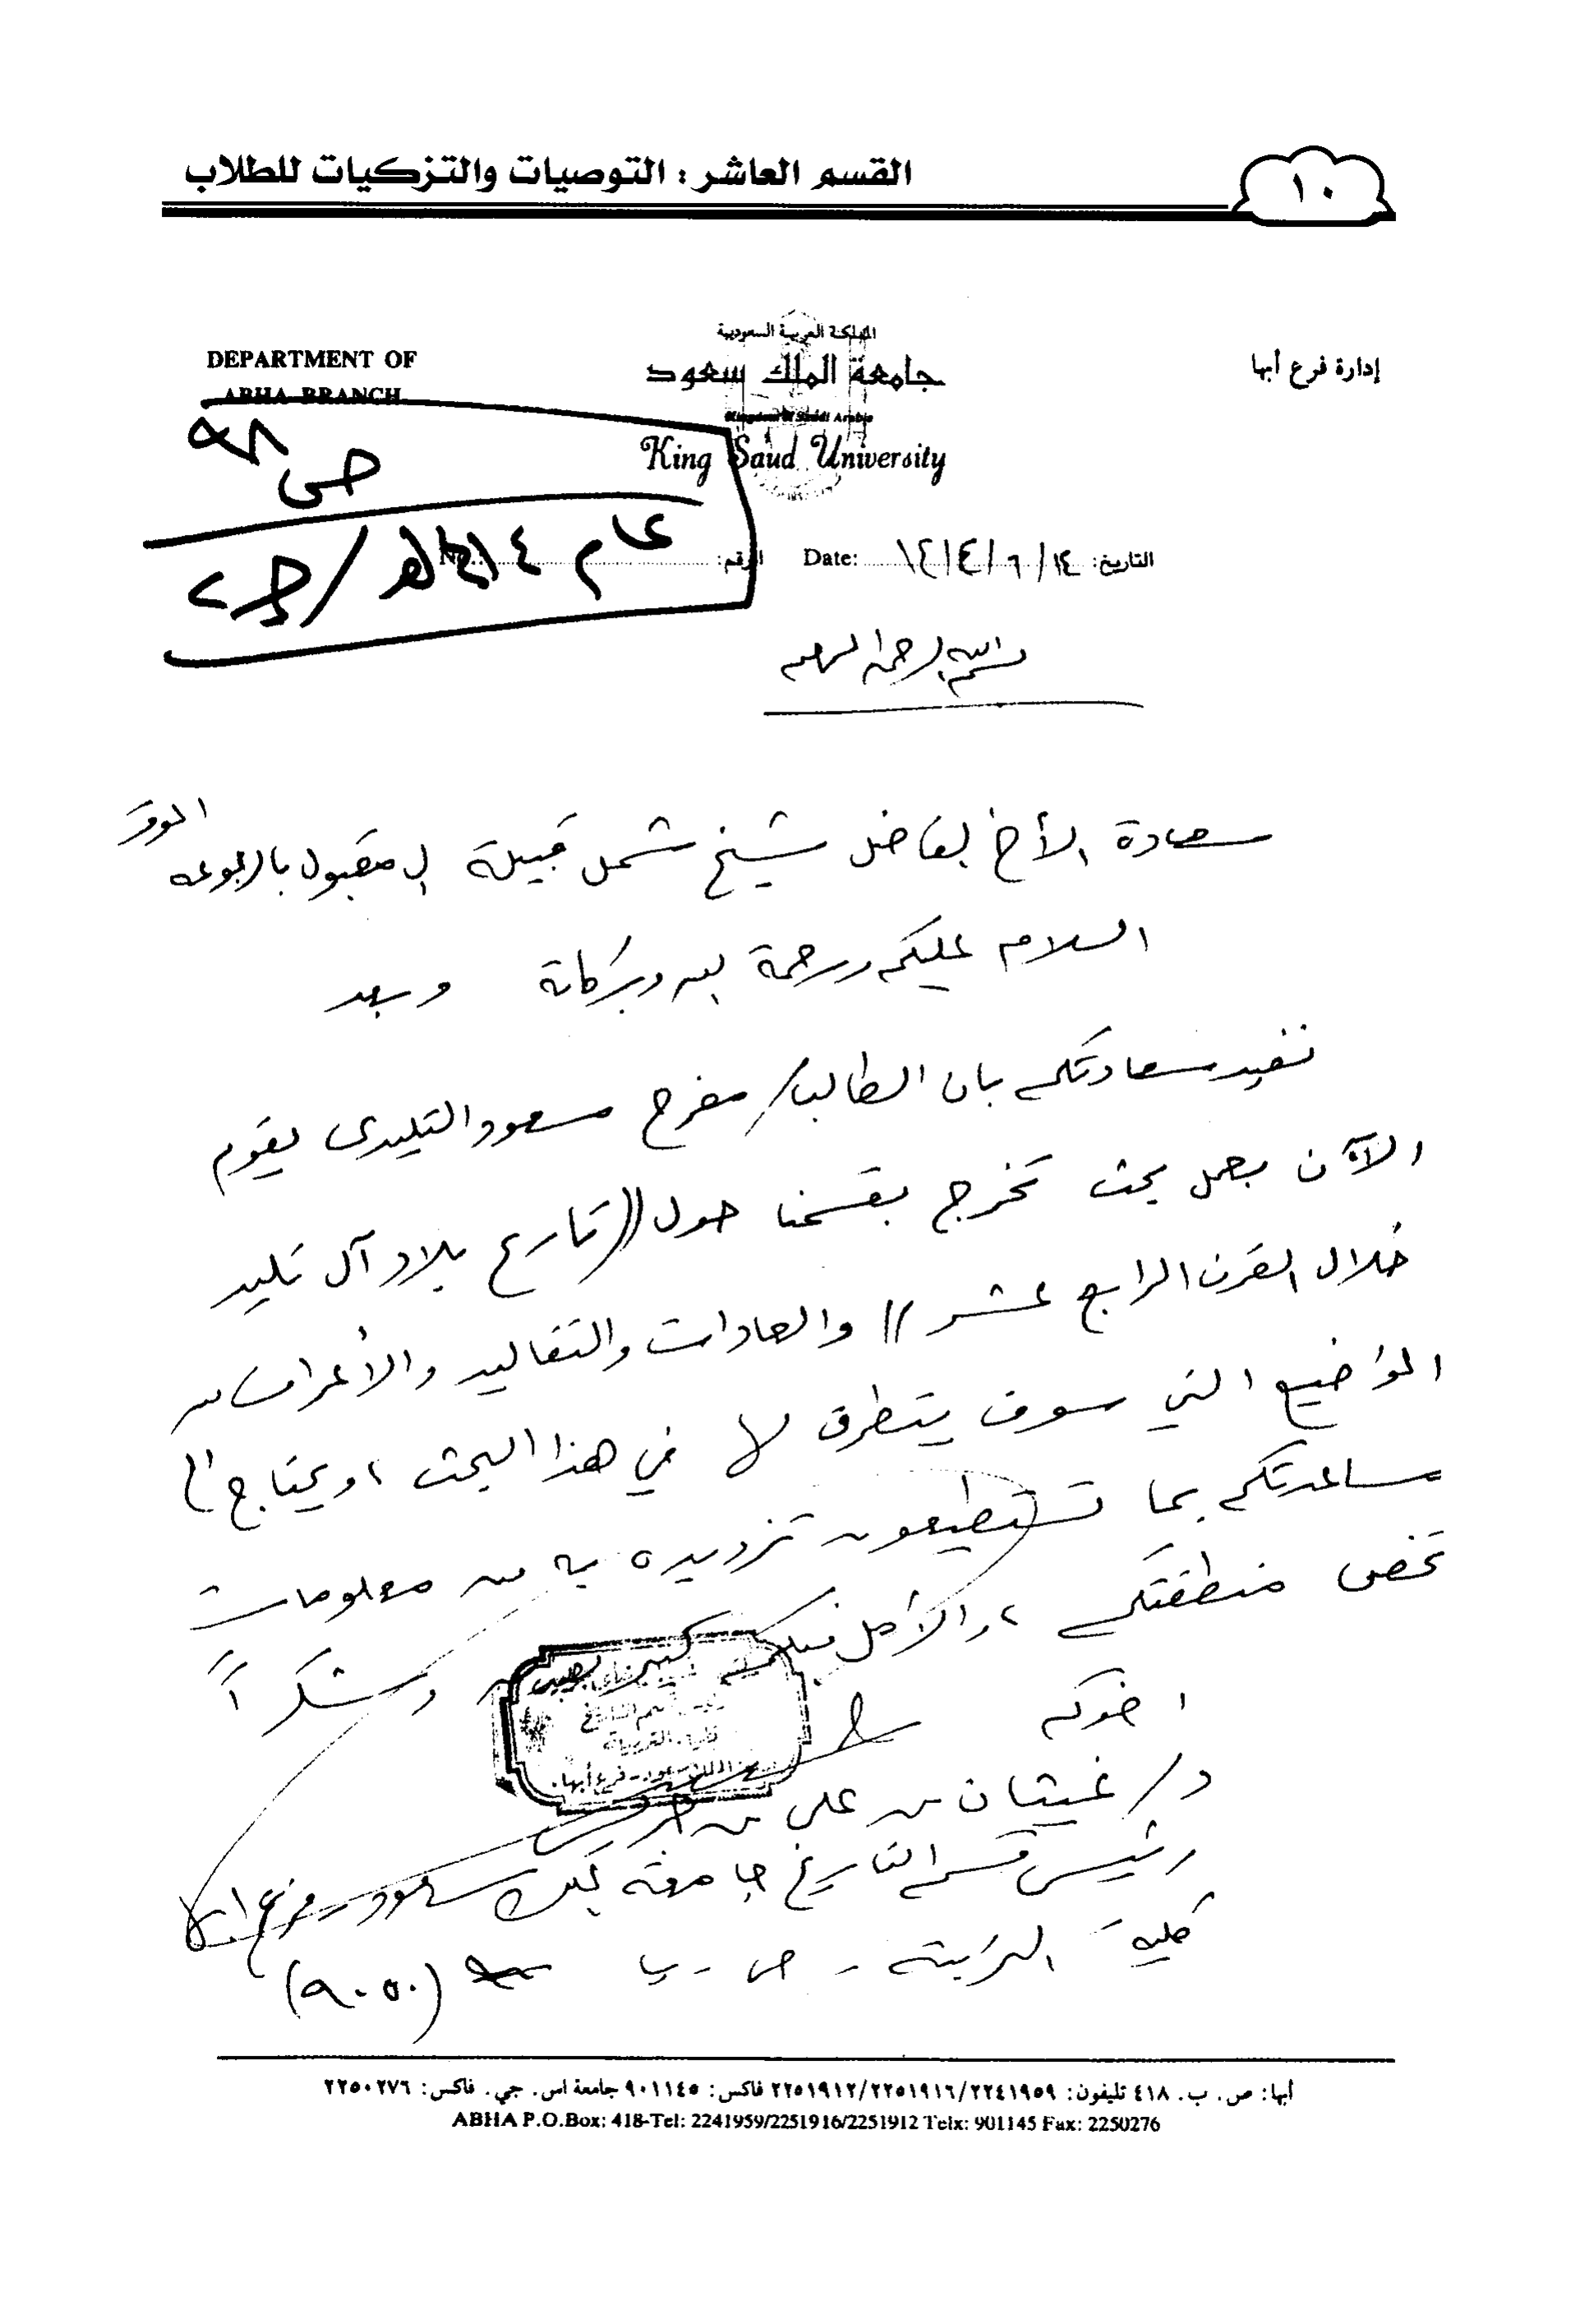 القسم العاشر : التوصيات والتزكيات للطلاب
١٠
إدارة فرع أبها
المملكة العربية السعودية
جامعة الملك سعود
Kingdom of Saudi Arabia
King Saud University
DEPARTMENT OF
ABHA BRANCH
ص ٩٨
عام ١٤١٤هـ / جـ٢
التاريخ: ١٤١٤/٦/١٤ Date: الرقم: No.:
بسم الله الرحمن الرحيم
سعادة الأخ الفاضل شيخ شمل قبيلة ال مقبول الموقر
السلام عليكم ورحمة الله وبركاته وبعد
نفيد سعادتكم بان الطالب / مفرح مسعود التليدى يقوم
الآن بعمل بحث تخرج بقسمنا حول (( تاريخ بلاد آل تليد
خلال القرن الرابع عشر )) والعادات والتقاليد والأعراف من
المواضيع التي سوف يتطرق لها في هذا البحث ، ويحتاج الى
مساعدتكم بما تستطيعون تزويده به من معلومات
تخص منطقتكم ، والأمل فيكم كبير وشكراً
اخوكم
د / غيثان بن علي بن جريس
رئيس قسم التاريخ جامعة الملك سعود - فرع ابها
كلية التربية - ص - ب (٩٠٥٠)
أبها: ص. ب. ٤١٨ تليفون: ٢٢٥١٩١٢/٢٢٥١٩١٦/٢٢٤١٩٥٩ فاكس: ٩٠١١٤٥ جامعة اس. جي. فاكس: ٢٢٥٠٢٧٦
ABHA P.O.Box: 418-Tel: 2241959/2251916/2251912 Telx: 901145 Fax: 2250276